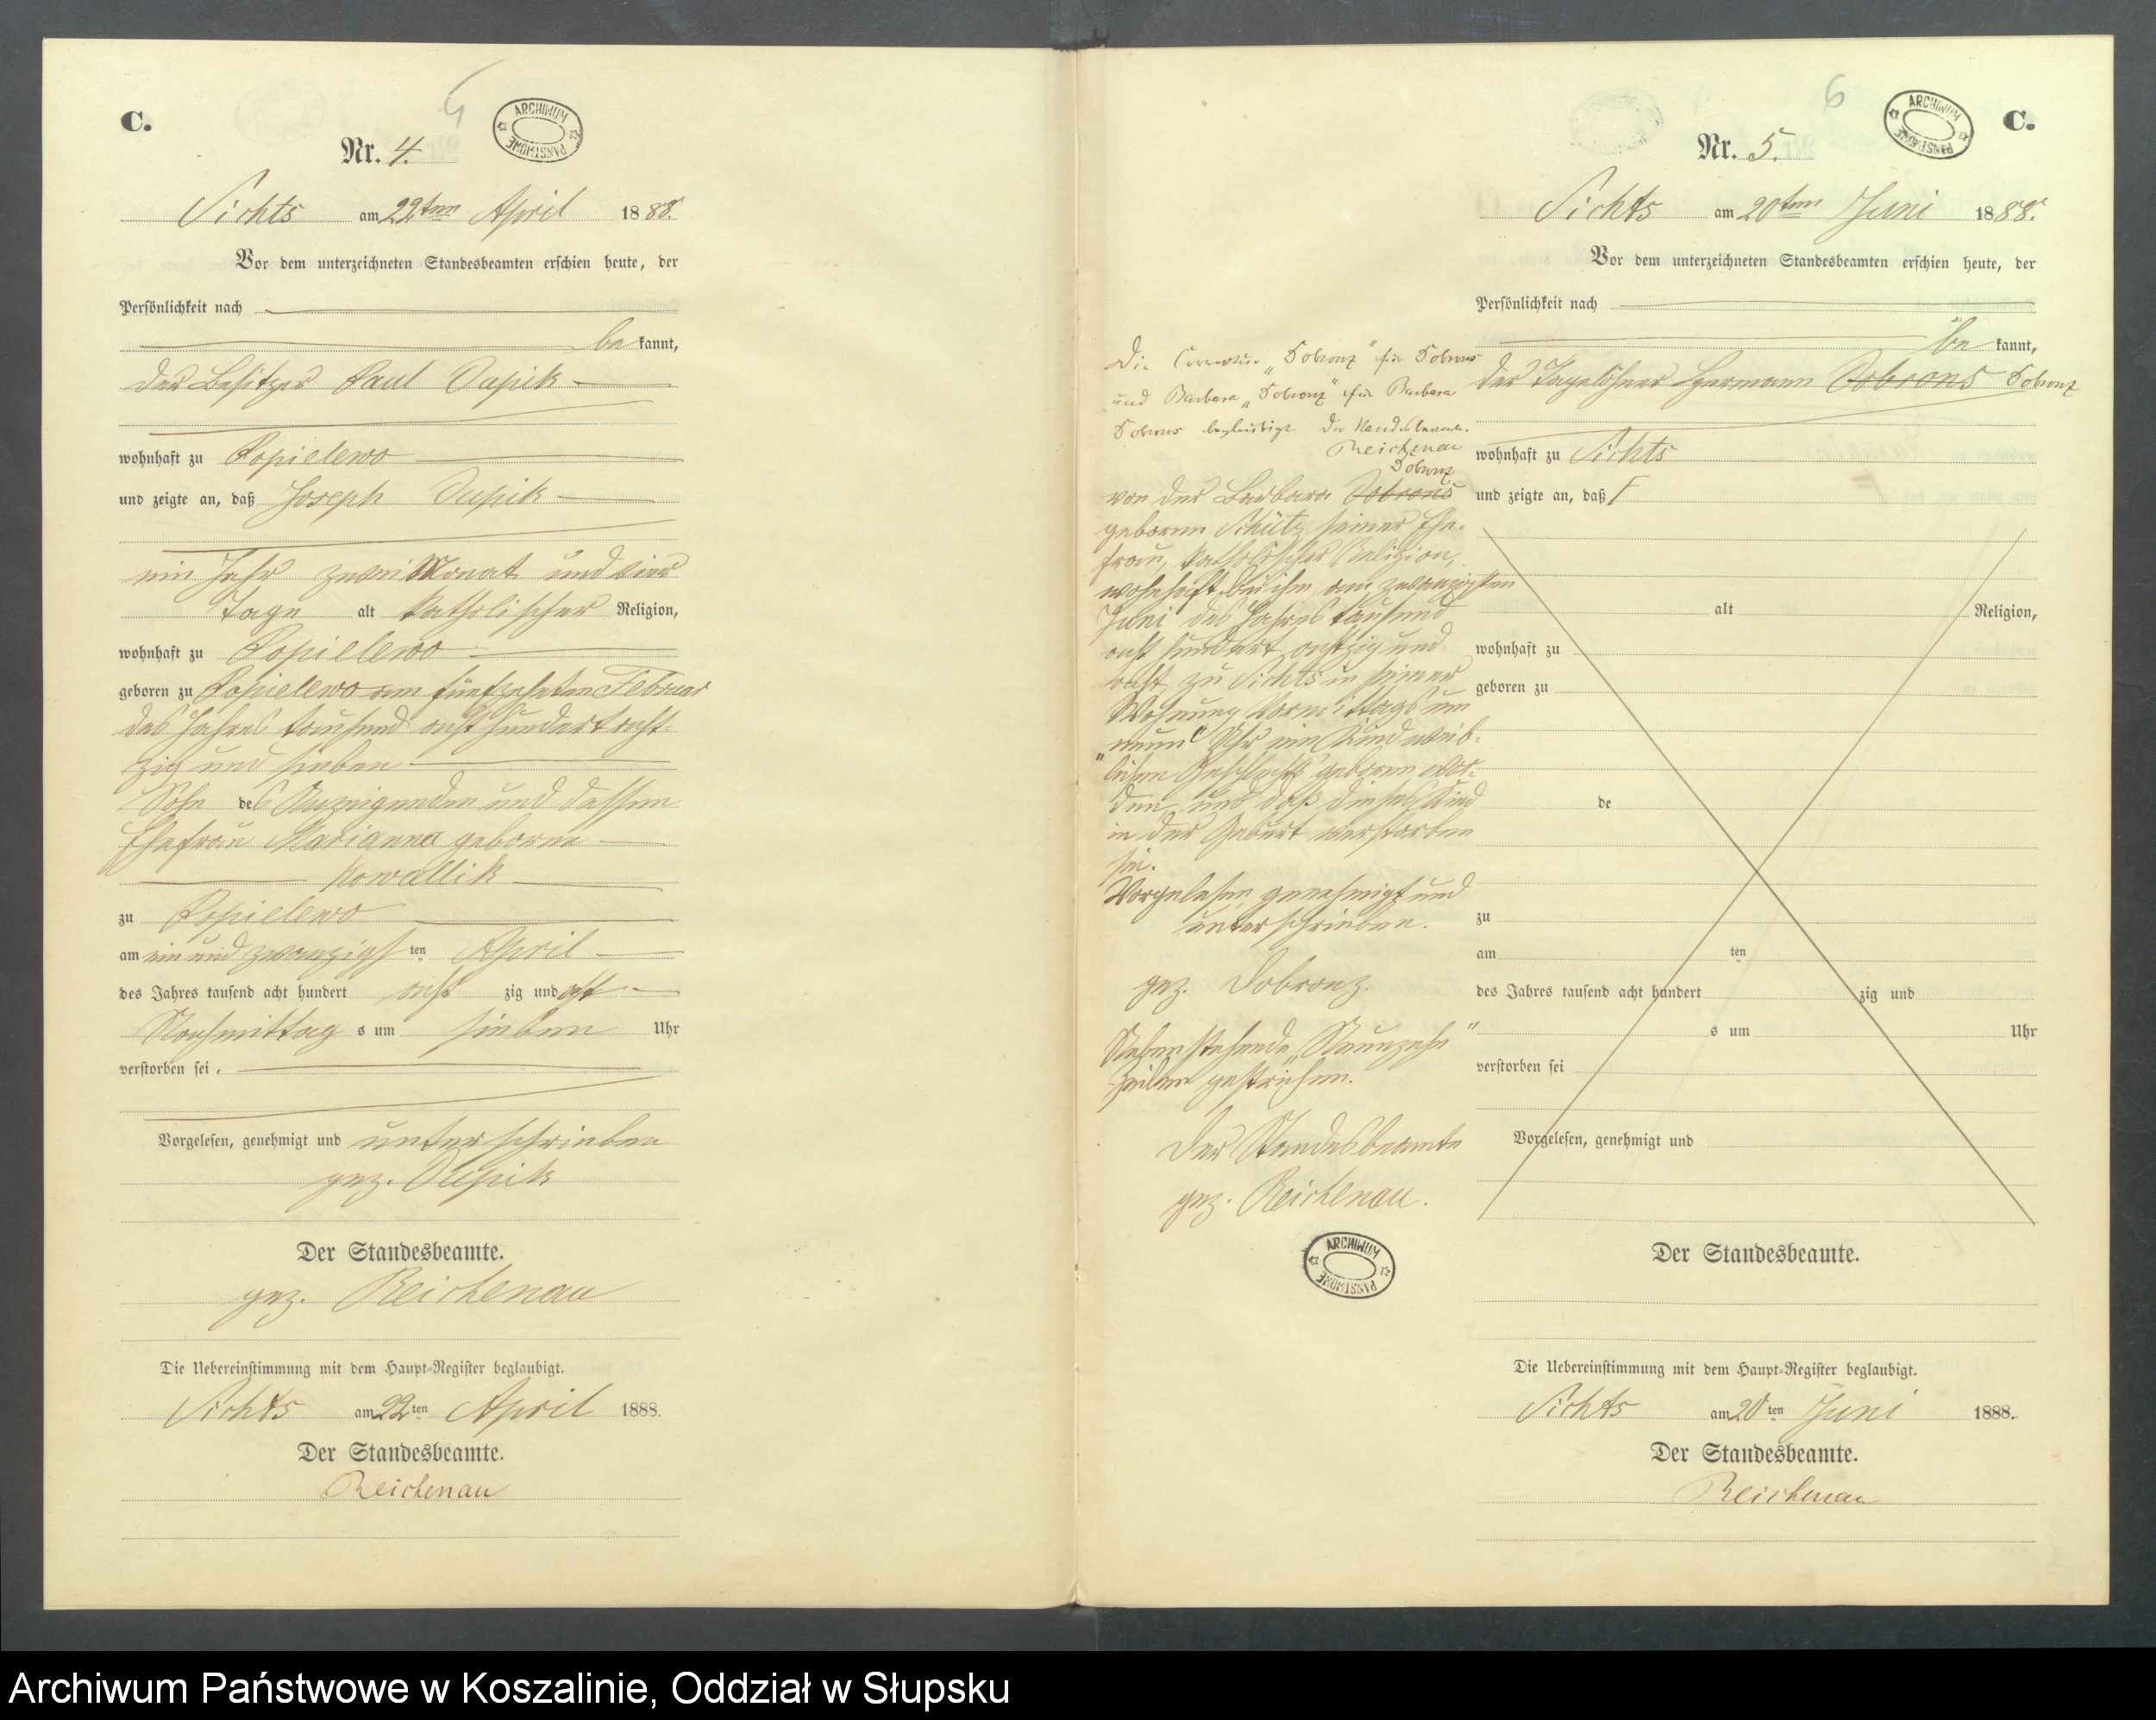 C.
4
ARCHIWUM PAŃSTWOWE
Nr. 4.
Sichts am 22ten April 1888.
Vor dem unterzeichneten Standesbeamten erschien heute, der
Persönlichkeit nach
bekannt,
der Besitzer Paul
wohnhaft zu Popielewo
und zeigte an, daß Joseph
ein Jahr zwei Monat und vier
Tage alt katholischer Religion,
wohnhaft zu Popielewo
geboren zu Popielewo am fünfzehnten Februar
des Jahres tausend acht hundert acht-
zig und sieben
Sohn des Anzeigenden und dessen
Ehefrau Marianna geborene
Kowallik
zu Popielewo
am ein und zwanzigsten April
des Jahres tausend acht hundert achtzig und acht
Nachmittags um sieben Uhr
verstorben sei.
Vorgelesen, genehmigt und unterschrieben
gez.
Der Standesbeamte.
gez. Reichenau
Die Uebereinstimmung mit dem Haupt-Register beglaubigt.
Sichts am 22ten April 1888.
Der Standesbeamte.
Reichenau
6
ARCHIWUM PAŃSTWOWE
C.
Nr. 5.
Sichts am 20ten Juni 1888.
Vor dem unterzeichneten Standesbeamten erschien heute, der
Persönlichkeit nach
bekannt,
der Tagelöhner Hermann Dobrons Dobronz
wohnhaft zu Sichts
und zeigte an, daß F
alt Religion,
wohnhaft zu
geboren zu
de
zu
am ten
des Jahres tausend acht hundert zig und
s um Uhr
verstorben sei
Vorgelesen, genehmigt und
Die Correctur „Dobronz" für Dobrons
und Barbara „Dobronz" für Barbara
Dobrons beglaubigt Der Standesbeamte.
Reichenau
Dobronz
von der Barbara Dobrons
geborene Schütz seiner Ehe-
frau, katholischer Religion,
wohnhaft bei ihm am zwanzigsten
Juni des Jahres tausend
acht hundert achtzig und
acht zu Sichts in seiner
Wohnung Vormittags um
„neun" Uhr ein Kind weib-
lichen Geschlechts geboren wor-
den, und daß dieses Kind
in der Geburt verstorben
sei.
Vorgelesen genehmigt und
unterschrieben.
gez. Dobronz.
Nebenstehende „Neunzehn"
Zeilen gestrichen.
Der Standesbeamte
gez. Reichenau.
ARCHIWUM PAŃSTWOWE
Der Standesbeamte.
Die Uebereinstimmung mit dem Haupt-Register beglaubigt.
Sichts am 20ten Juni 1888.
Der Standesbeamte.
Reichenau
Archiwum Państwowe w Koszalinie, Oddział w Słupsku